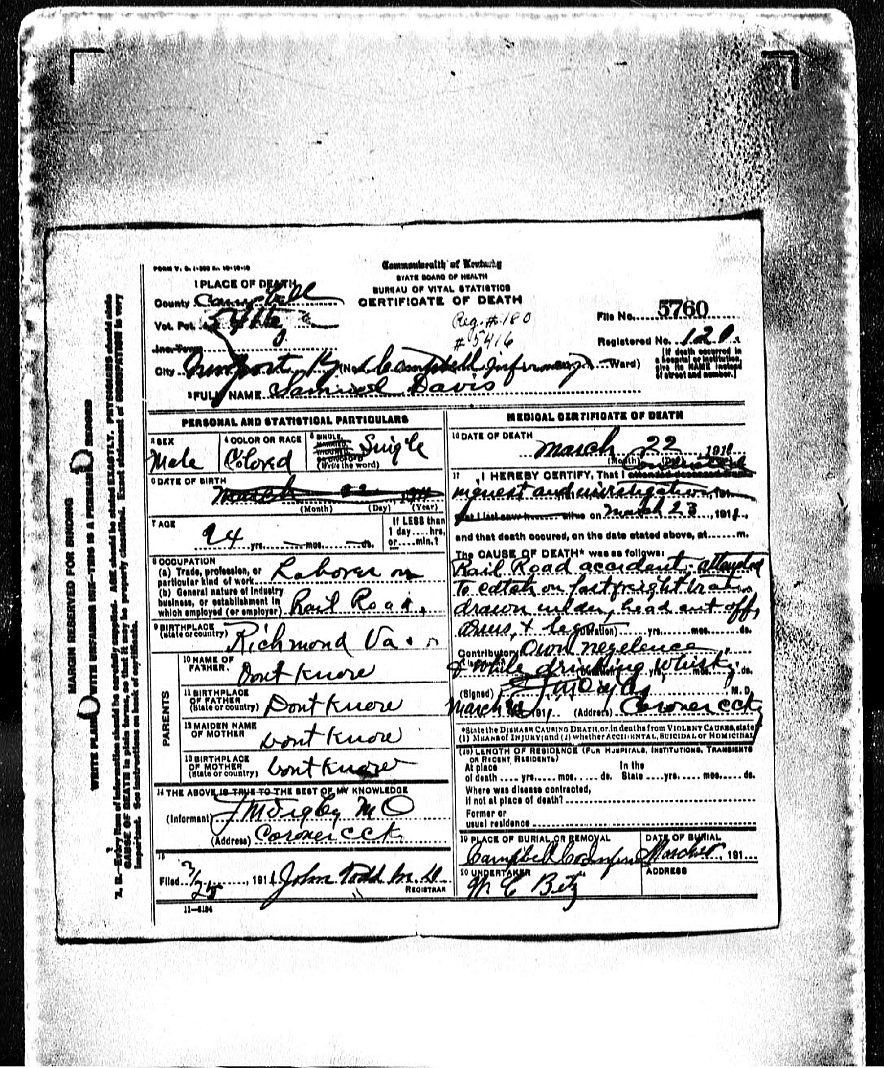 Commonwealth of Kentucky
STATE BOARD OF HEALTH
BUREAU OF VITAL STATISTICS
CERTIFICATE OF DEATH
1 PLACE OF DEATH
County Campbell
Vot. Pct.
Inc. Town
City Newport Ky (No. Campbell Infirmary Ward)
Reg. # 180
# 5416
File No. 5760
Registered No. 120
[If death occurred in
a hospital or institution,
give its NAME instead
of street and number.]
2 FULL NAME Samuel Davis
PERSONAL AND STATISTICAL PARTICULARS
3 SEX
Male
4 COLOR OR RACE
Colored
5 SINGLE,
MARRIED,
WIDOWED,
OR DIVORCED
(Write the word)
Single
6 DATE OF BIRTH
March 22 191
(Month) (Day) (Year)
7 AGE
24 yrs. mos. ds.
If LESS than
1 day hrs.
or min.?
8 OCCUPATION
(a) Trade, profession, or
particular kind of work Laborer on
(b) General nature of industry
business, or establishment in
which employed (or employer) Rail Road.
9 BIRTHPLACE
(State or country) Richmond Va.
PARENTS
10 NAME OF
FATHER Dont Know
11 BIRTHPLACE
OF FATHER
(State or country) Dont Know
12 MAIDEN NAME
OF MOTHER Dont Know
13 BIRTHPLACE
OF MOTHER
(State or country) Dont Know
14 THE ABOVE IS TRUE TO THE BEST OF MY KNOWLEDGE
(Informant)
(Address) Coroner CCK
15
Filed 191 John Todd M.D.
REGISTRAR
11-6184
MEDICAL CERTIFICATE OF DEATH
16 DATE OF DEATH
March 22 191
(Month)
17 I HEREBY CERTIFY, That I attended deceased conducted
inquest and investigation 191
that I last saw alive on March 23, 191
and that death occured, on the date stated above, at m.
The CAUSE OF DEATH* was as follows:
Rail Road accident. attempted
to catch on fast freight train
drawn under, head cut off,
arms, & legs
(Duration) yrs. mos. ds.
Contributory Own negelence
& while drinking Whisky
(Duration) yrs. mos. ds.
(Signed) M. D.
March 191 (Address) Coroner CCK
*State the DISEASE CAUSING DEATH, or, in deaths from VIOLENT CAUSES, state
(1) MEANS of INJURY; and (2) whether ACCIDENTAL, SUICIDAL or HOMICIDAL
18 LENGTH OF RESIDENCE (FOR HOSPITALS, INSTITUTIONS, TRANSIENTS
OR RECENT RESIDENTS)
At place In the
of death yrs. mos. ds. State yrs. mos. ds.
Where was disease contracted,
if not at place of death?
Former or
usual residence
19 PLACE OF BURIAL OR REMOVAL
Campbell Co
DATE OF BURIAL
March 191
20 UNDERTAKER
ADDRESS
W C Betz
MARGIN RESERVED FOR BINDING
WRITE PLAINLY WITH UNFADING INK—THIS IS A PERMANENT RECORD
N. B.—Every item of information should be carefully supplied. AGE should be stated EXACTLY. PHYSICIANS should state
CAUSE OF DEATH in plain terms, so that it may be properly classified. Exact statement of OCCUPATION is very
important. See instructions on back of certificate.